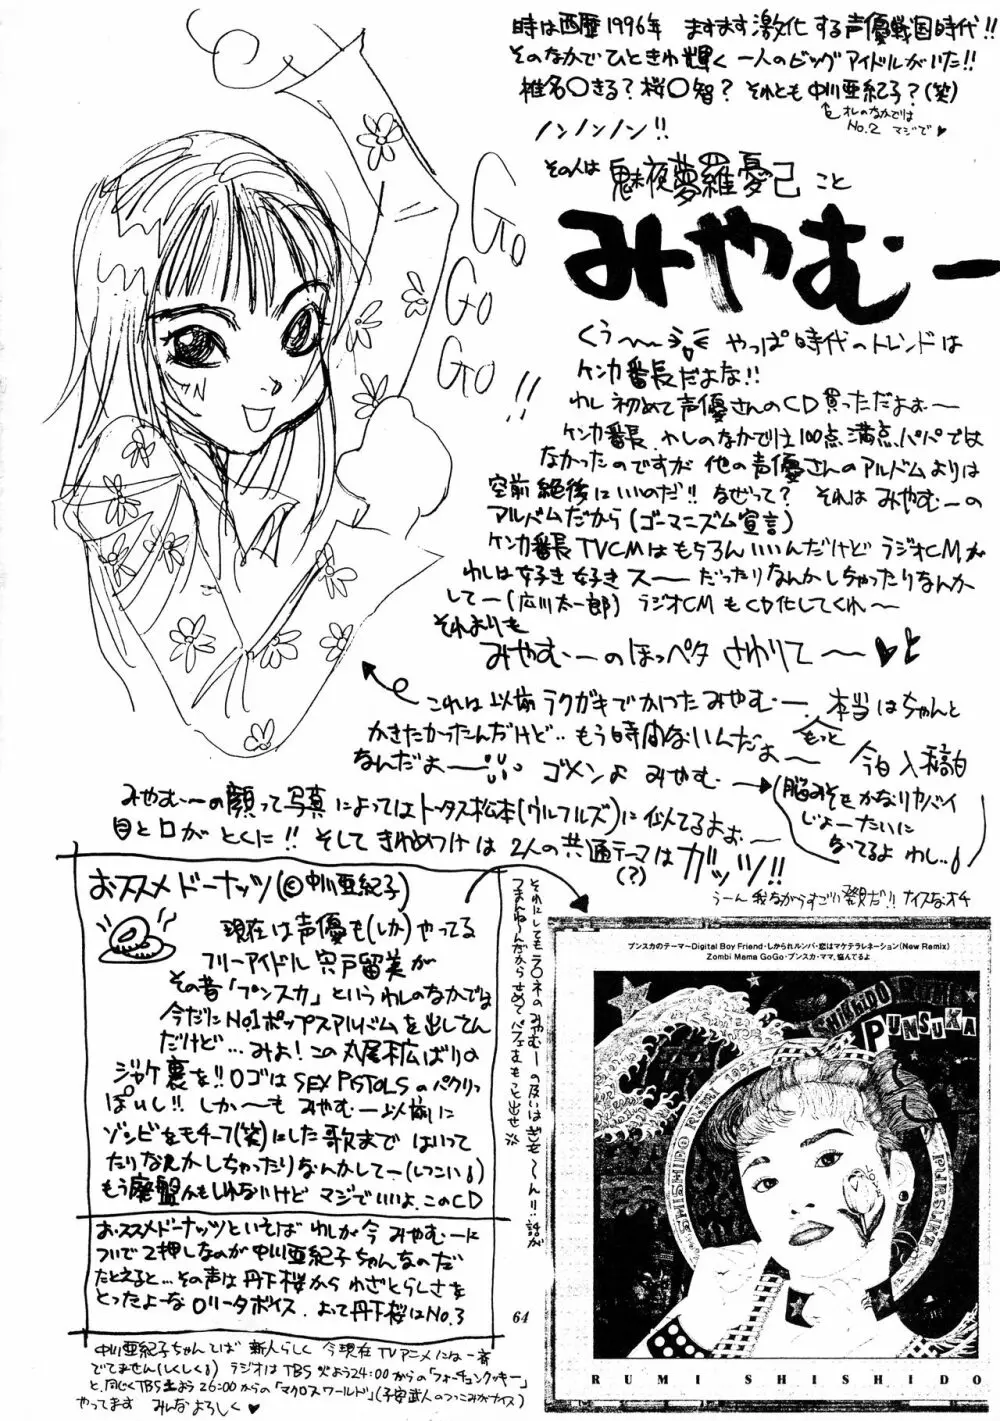 時は西暦1996年 ますます激化する声優戦国時代!!
そのなかでひときわ輝く 一人のビッグアイドルがいた!!
椎名〇きる?桜〇智?それとも中川亜紀子?(笑)
オレのなかでは
No.2 マジで♥
ノンノンノン!!
その人は 魅夜夢羅優己 こと
みやむー
Go
Go
Go!!
くぅ〜〜 やっぱ時代のトレンドは
ケンカ番長だよな!!
わし初めて声優さんのCD買っただよぉ〜
ケンカ番長、わしのなかでは100点満点パパでは
なかったのですが 他の声優さんのアルバムよりは
空前絶後にいいのだ!! なぜって? それは みやむーの
アルバムだから(ゴーマニズム宣言)
ケンカ番長TVCMはもちろんいいんだけど ラジオCMが
わしは好き好きスー〜 だったりなんかしちゃったりなんか
してー(広川太一郎) ラジオCMもCD化してくれ〜
それよりも
みやむーのほっペタ さわりてー〜♥
これは以前ラクガキでかいたみやむー。本当はちゃんと
かきたかったんだけど‥もう時間ないんだよ〜 もっと
なんだよー ゴメンよ みやむー 今日入稿日
(脳みそをかなりヤバイ
じょーたいに
なってるよ わし‥
みやむーの顔って写真によってはトータス松本(ウルフルズ)に似てるよぉ〜
目と口がとくに!! そして きわめつけは 2人の共通テーマは ガッツ!!
(?)
うーん 我ながらすごい発見だ!! ナイスなオチ
おススメドーナッツ(©中川亜紀子)
現在は声優も(しか)やってる
フリーアイドル 宍戸留美が
その昔「プンスカ」というわしのなかでは
今だにNo.1ポップスアルバムを出してん
だけど…みよ!この丸尾末広ばりの
ジャケ裏を!!ロゴはSEX PISTOLSのパクリっ
ぽいし!! しか〜も みやむー以前に
ゾンビをモチーフ(笑)にした歌まではいって
たりなんかしちゃったりなんかしてー(しつこい)
もう廃盤かもしれないけど マジでいいよ、このCD
おススメドーナッツといえば わしが今 みやむーに
ついで2押しなのが中川亜紀子ちゃんなのだ
たとえると…その声は丹下桜からわざとらしさを
とったよーなロリータボイス。よって丹下桜はNo.3
中川亜紀子ちゃんは 新人らしく 今現在TVアニメには一番
でてません(しくしく) ラジオはTBS火よう24:00からの「フォーチュンクッキー」
と、同じくTBS土よう26:00からの「マクロスワールド」(子安武人のつっこみがナイス)
やってます みんなよろしく♥
それにしてもラ〇ネのみやむーの扱いはぎも〜ん!!話が
つまんねーんだからせめてパフェをもっと出せ
64
プンスカのテーマ〜Digital Boy Friend・しかられルンバ・恋はマケテラレネーション(New Remix)
Zombi Mama GoGo・プンスカ・ママ、悩んでるよ
SHISHIDO RUMI
PUNSUKA
SHISHIDO RUMI 1994
RUMI SHISHIDO